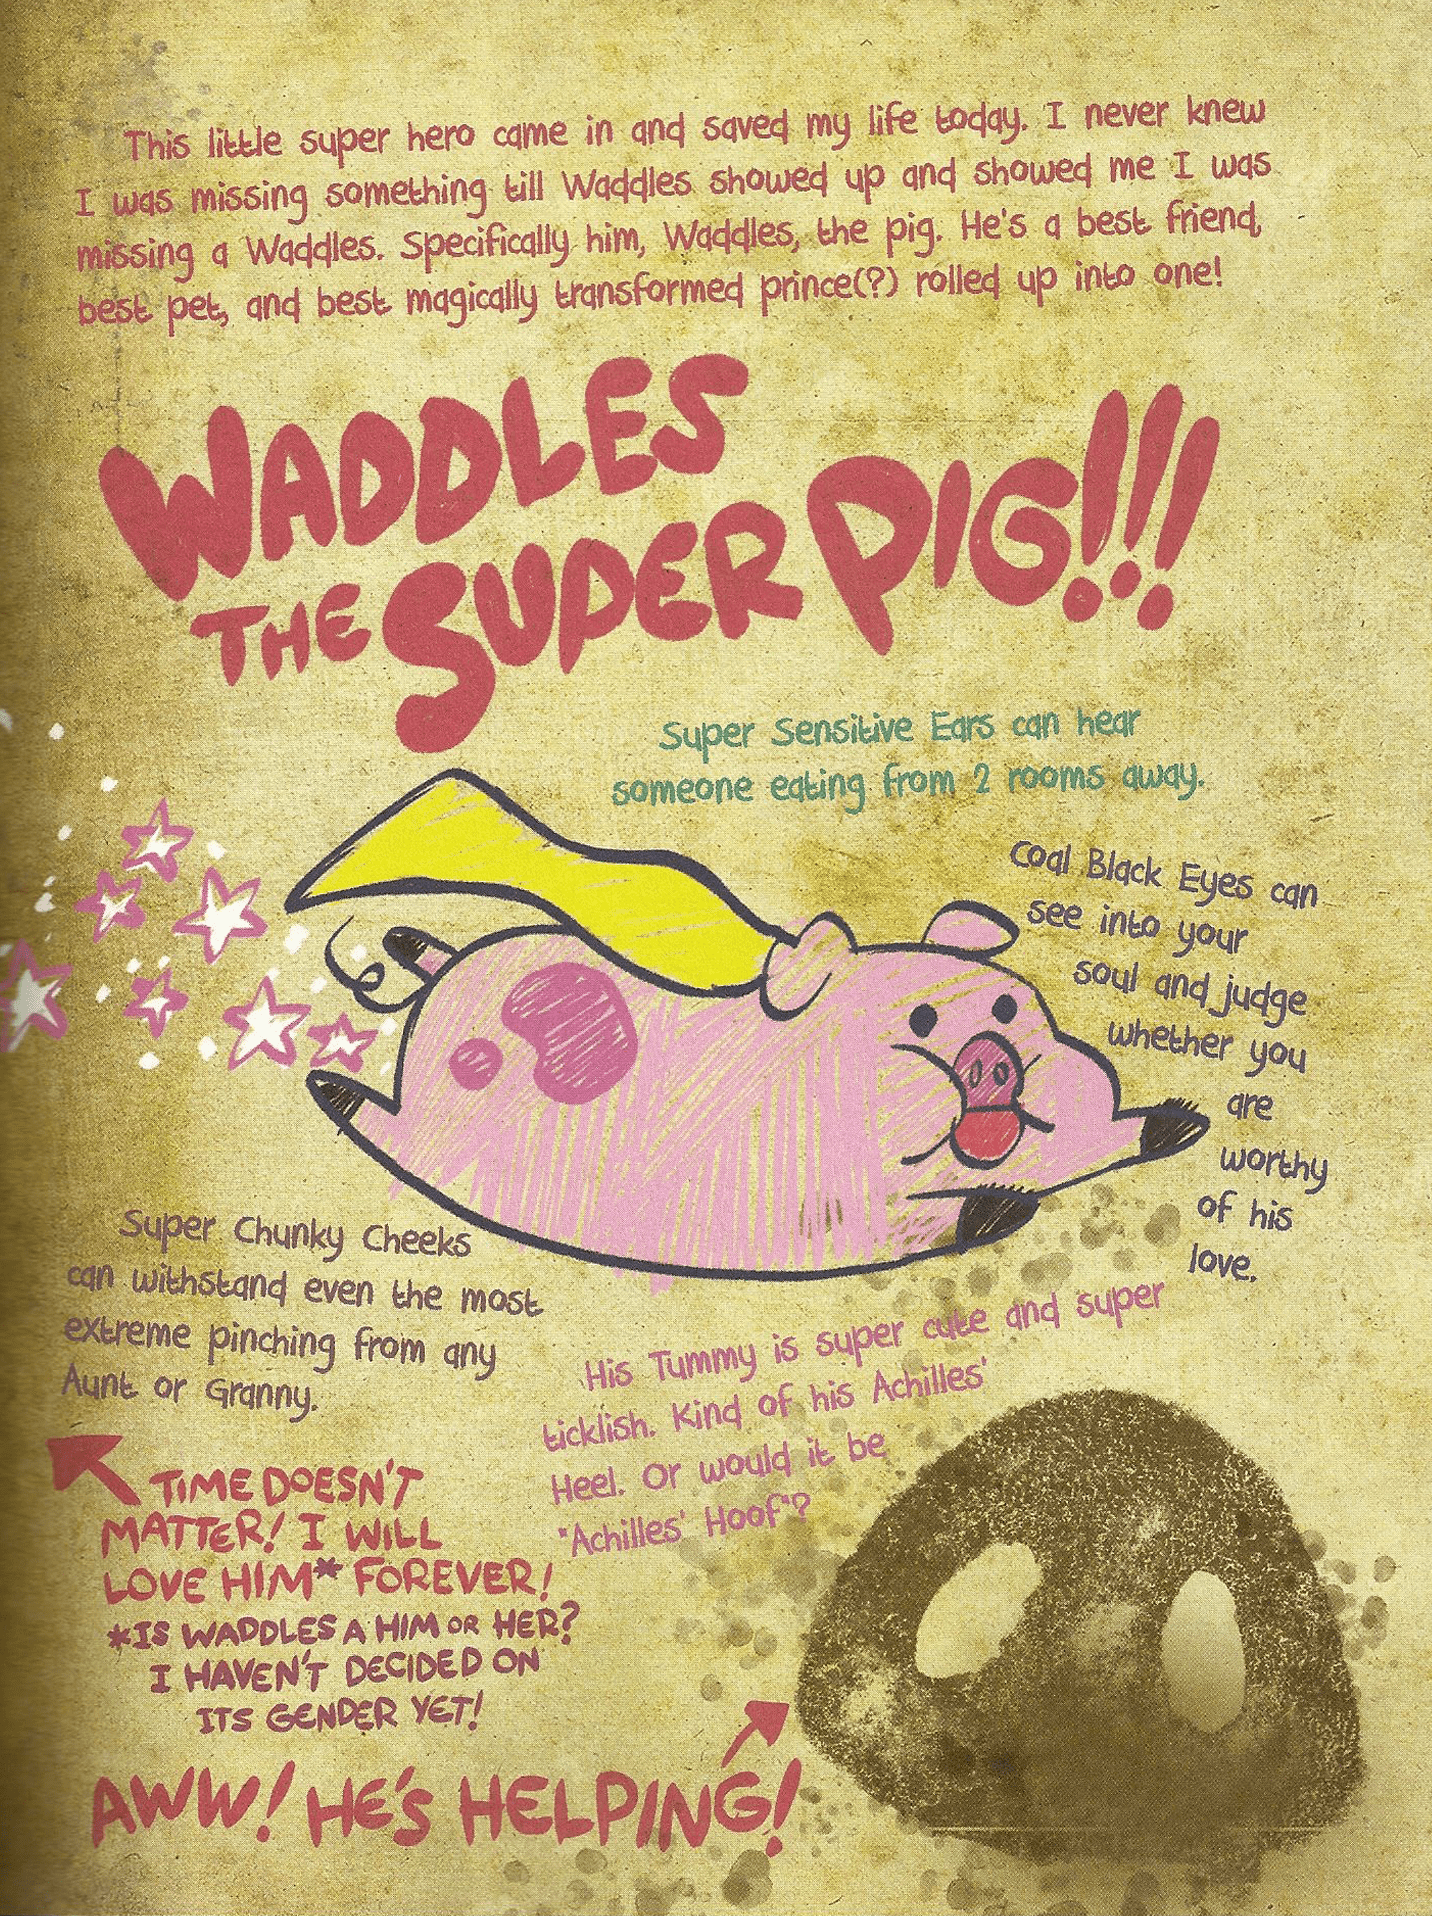 This little super hero came in and saved my life today. I never knew
I was missing something till Waddles showed up and showed me I was
missing a Waddles. Specifically him, Waddles, the pig. He's a best friend,
best pet, and best magically transformed prince(?) rolled up into one!
WADDLES
THE SUPER PIG!!!
Super Sensitive Ears can hear
someone eating from 2 rooms away.
Coal Black Eyes can
see into your
soul and judge
whether you
are
worthy
of his
love.
Super Chunky Cheeks
can withstand even the most
extreme pinching from any
Aunt or Granny.
His Tummy is super cute and super
ticklish. Kind of his Achilles'
Heel. Or would it be
"Achilles' Hoof"?
TIME DOESN'T
MATTER! I WILL
LOVE HIM* FOREVER!
*IS WADDLES A HIM OR HER?
I HAVEN'T DECIDED ON
ITS GENDER YET!
AWW! HE'S HELPING!